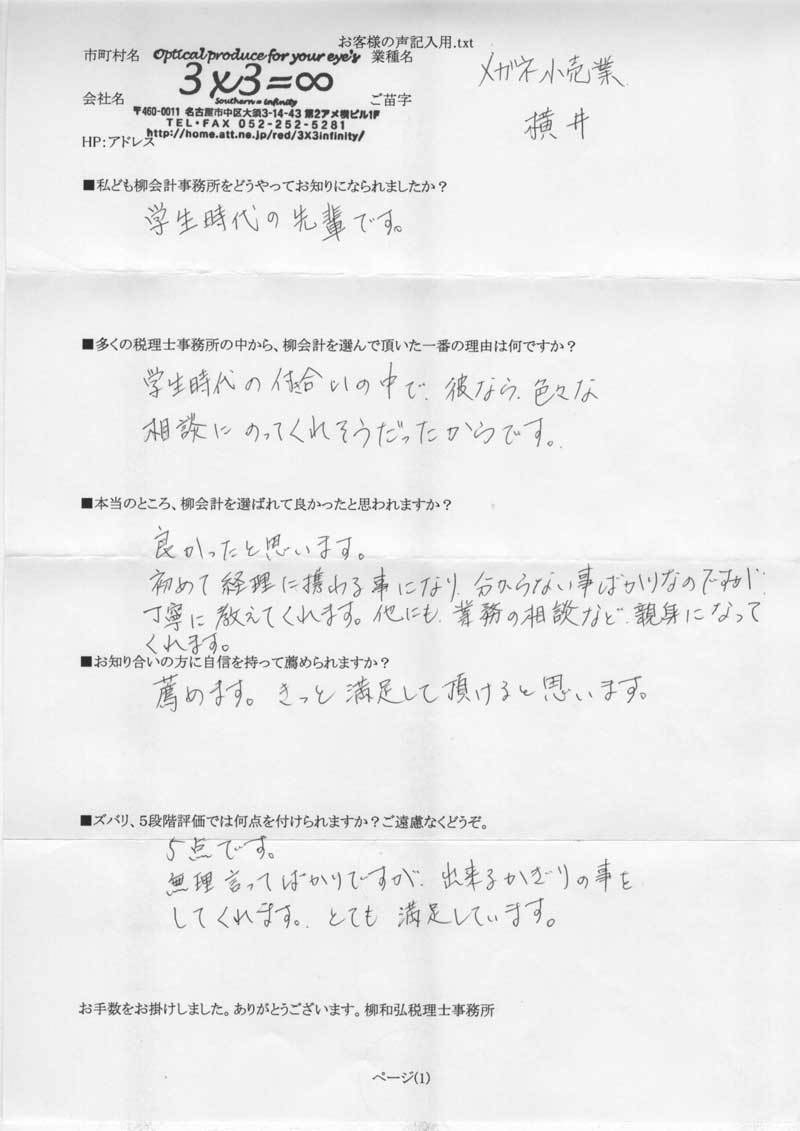 お客様の声記入用.txt
市町村名 Optical produce for your eye's 業種名 メガネ小売業
3x3=∞
会社名 Southern = infinity ご苗字 横井
〒460-0011 名古屋市中区大須3-14-43 第2アメ横ビル1F
TEL・FAX 052-252-5281
HP:アドレス http://home.att.ne.jp/red/3X3infinity/
■私ども柳会計事務所をどうやってお知りになられましたか?
学生時代の先輩です。
■多くの税理士事務所の中から、柳会計を選んで頂いた一番の理由は何ですか?
学生時代の付き合いの中で、彼なら、色々な
相談にのってくれそうだったからです。
■本当のところ、柳会計を選ばれて良かったと思われますか?
良かったと思います。
初めて経理に携わる事になり、分からない事ばかりなのですが、
丁寧に教えてくれます。他にも、業務の相談など、親身になって
くれます。
■お知り合いの方に自信を持って薦められますか?
薦めます。きっと満足して頂けると思います。
■ズバリ、5段階評価では何点を付けられますか?ご遠慮なくどうぞ。
5点です。
無理言ってばかりですが、出来るかぎりの事を
してくれます。とても満足しています。
お手数をお掛けしました。ありがとうございます。柳和弘税理士事務所
ページ(1)